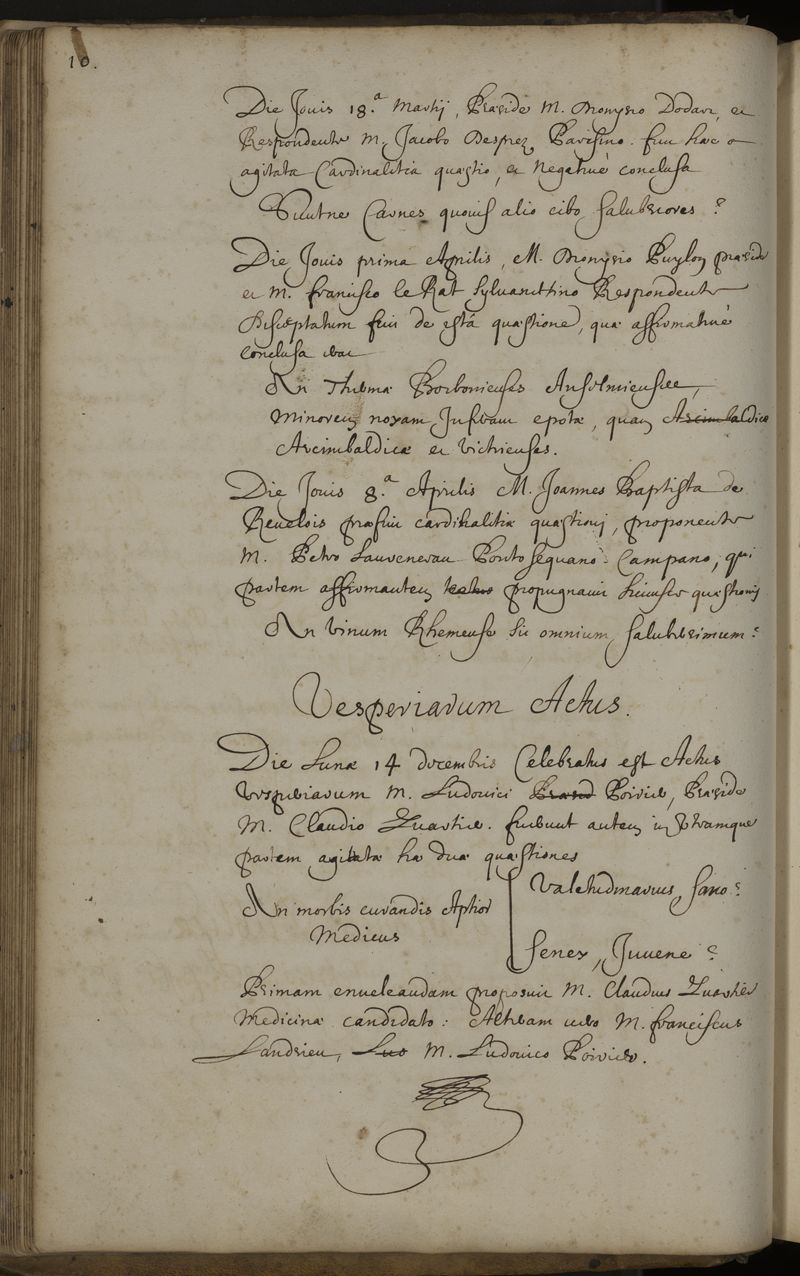 10.
Die Jovis 18.a Martij, Præside M. Dionysio Dodart, et
Respondente M. Jacobo Desprez Parisino. fuit hæc
agitata Cardinalitia quæstio, et Negativè conclusa
Suntne Carnes quovis alio cibo salubriores?
Die Jovis prima Aprilis, M. Dionysio Puylon præside
et M. francisco le Rat Sylvanectino Respondente
Disceptatum fuit de istâ quæstione, quæ affirmativè
conclusa
An Thermæ Borbonienses Anselmienses,
minorem noxam Inferant epotæ, quam Arcimbaldicæ
Arcimbaldicæ et Vichienses.
Die Jovis 8.a Aprilis M. Joannes Baptista de
Revelois præfuit cardinalitiæ quæstioni, proponente
M. Petro Ponto sequano Campano, qui
partem affirmantem propugnavit hujusce quæstionis
An vinum Rhemense sit omnium saluberrimum?
Vesperiarum Actus.
Die Lunæ 14 decembris Celebratus est Actus
Vesperiarum M. Ludovici Poirier, Præside
M. Claudio Quartier. fuerunt autem in Utramque
partem agitatæ hæ duæ quæstiones
An morbis curandis Aptior
Medicus
Valetudinarius, sano?
senex, Juvene?
Primam enucleandam proposuit M. Claudius Quartier
Medicinæ candidato: Alteram vero M. franciscus
Landrieu, M. Ludovico Poirier.